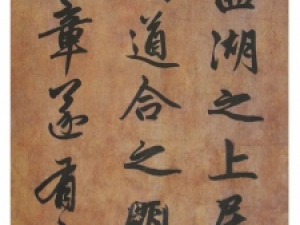 湖之上居
道合之
章遂有